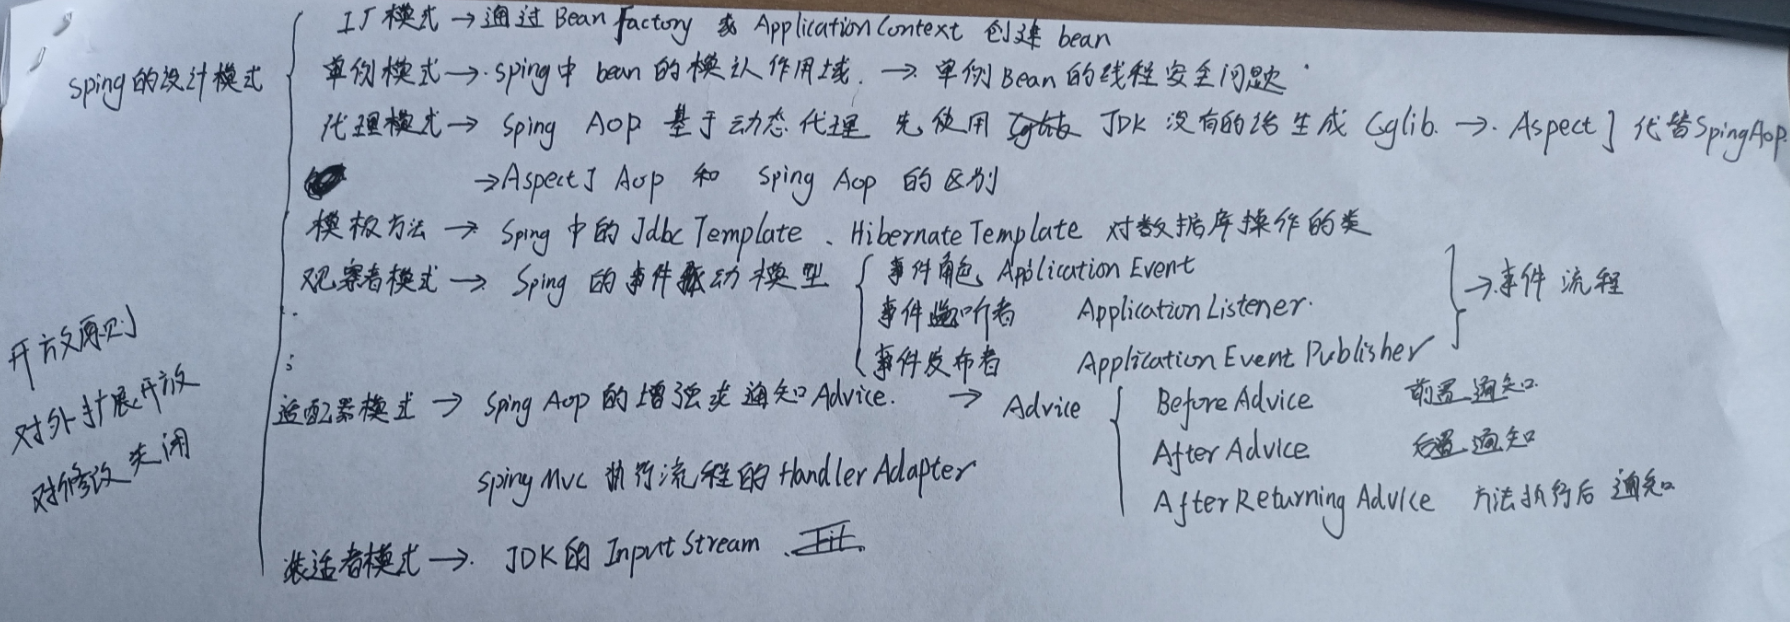 sping的设计模式
工厂模式 → 通过 Bean Factory 或 Application Context 创建 bean
单例模式 → sping中 bean 的模认作用域. → 单例Bean的线程安全问题
代理模式 → Sping AOP 基于动态代理 先使用 JDK 没有的话生成 Cglib. → AspectJ 代替SpingAop
→ AspectJ Aop 和 Sping Aop 的区别
模板方法 → Sping 中的 Jdbc Template、Hibernate Template 对数据库操作的类
观察者模式 → Sping 的事件驱动模型
事件角色 Application Event
事件监听者 Application Listener.
事件发布者 Application Event Publisher
→ 事件流程
适配器模式 → Sping Aop 的增强或通知Advice. → Advice
Before Advice 前置通知
After Advice 后置通知
After Returning Advice 方法执行后通知
sping Mvc 执行流程的 Handler Adapter
装适者模式 → JDK的 Input Stream
开放原则
对外扩展开放
对修改关闭